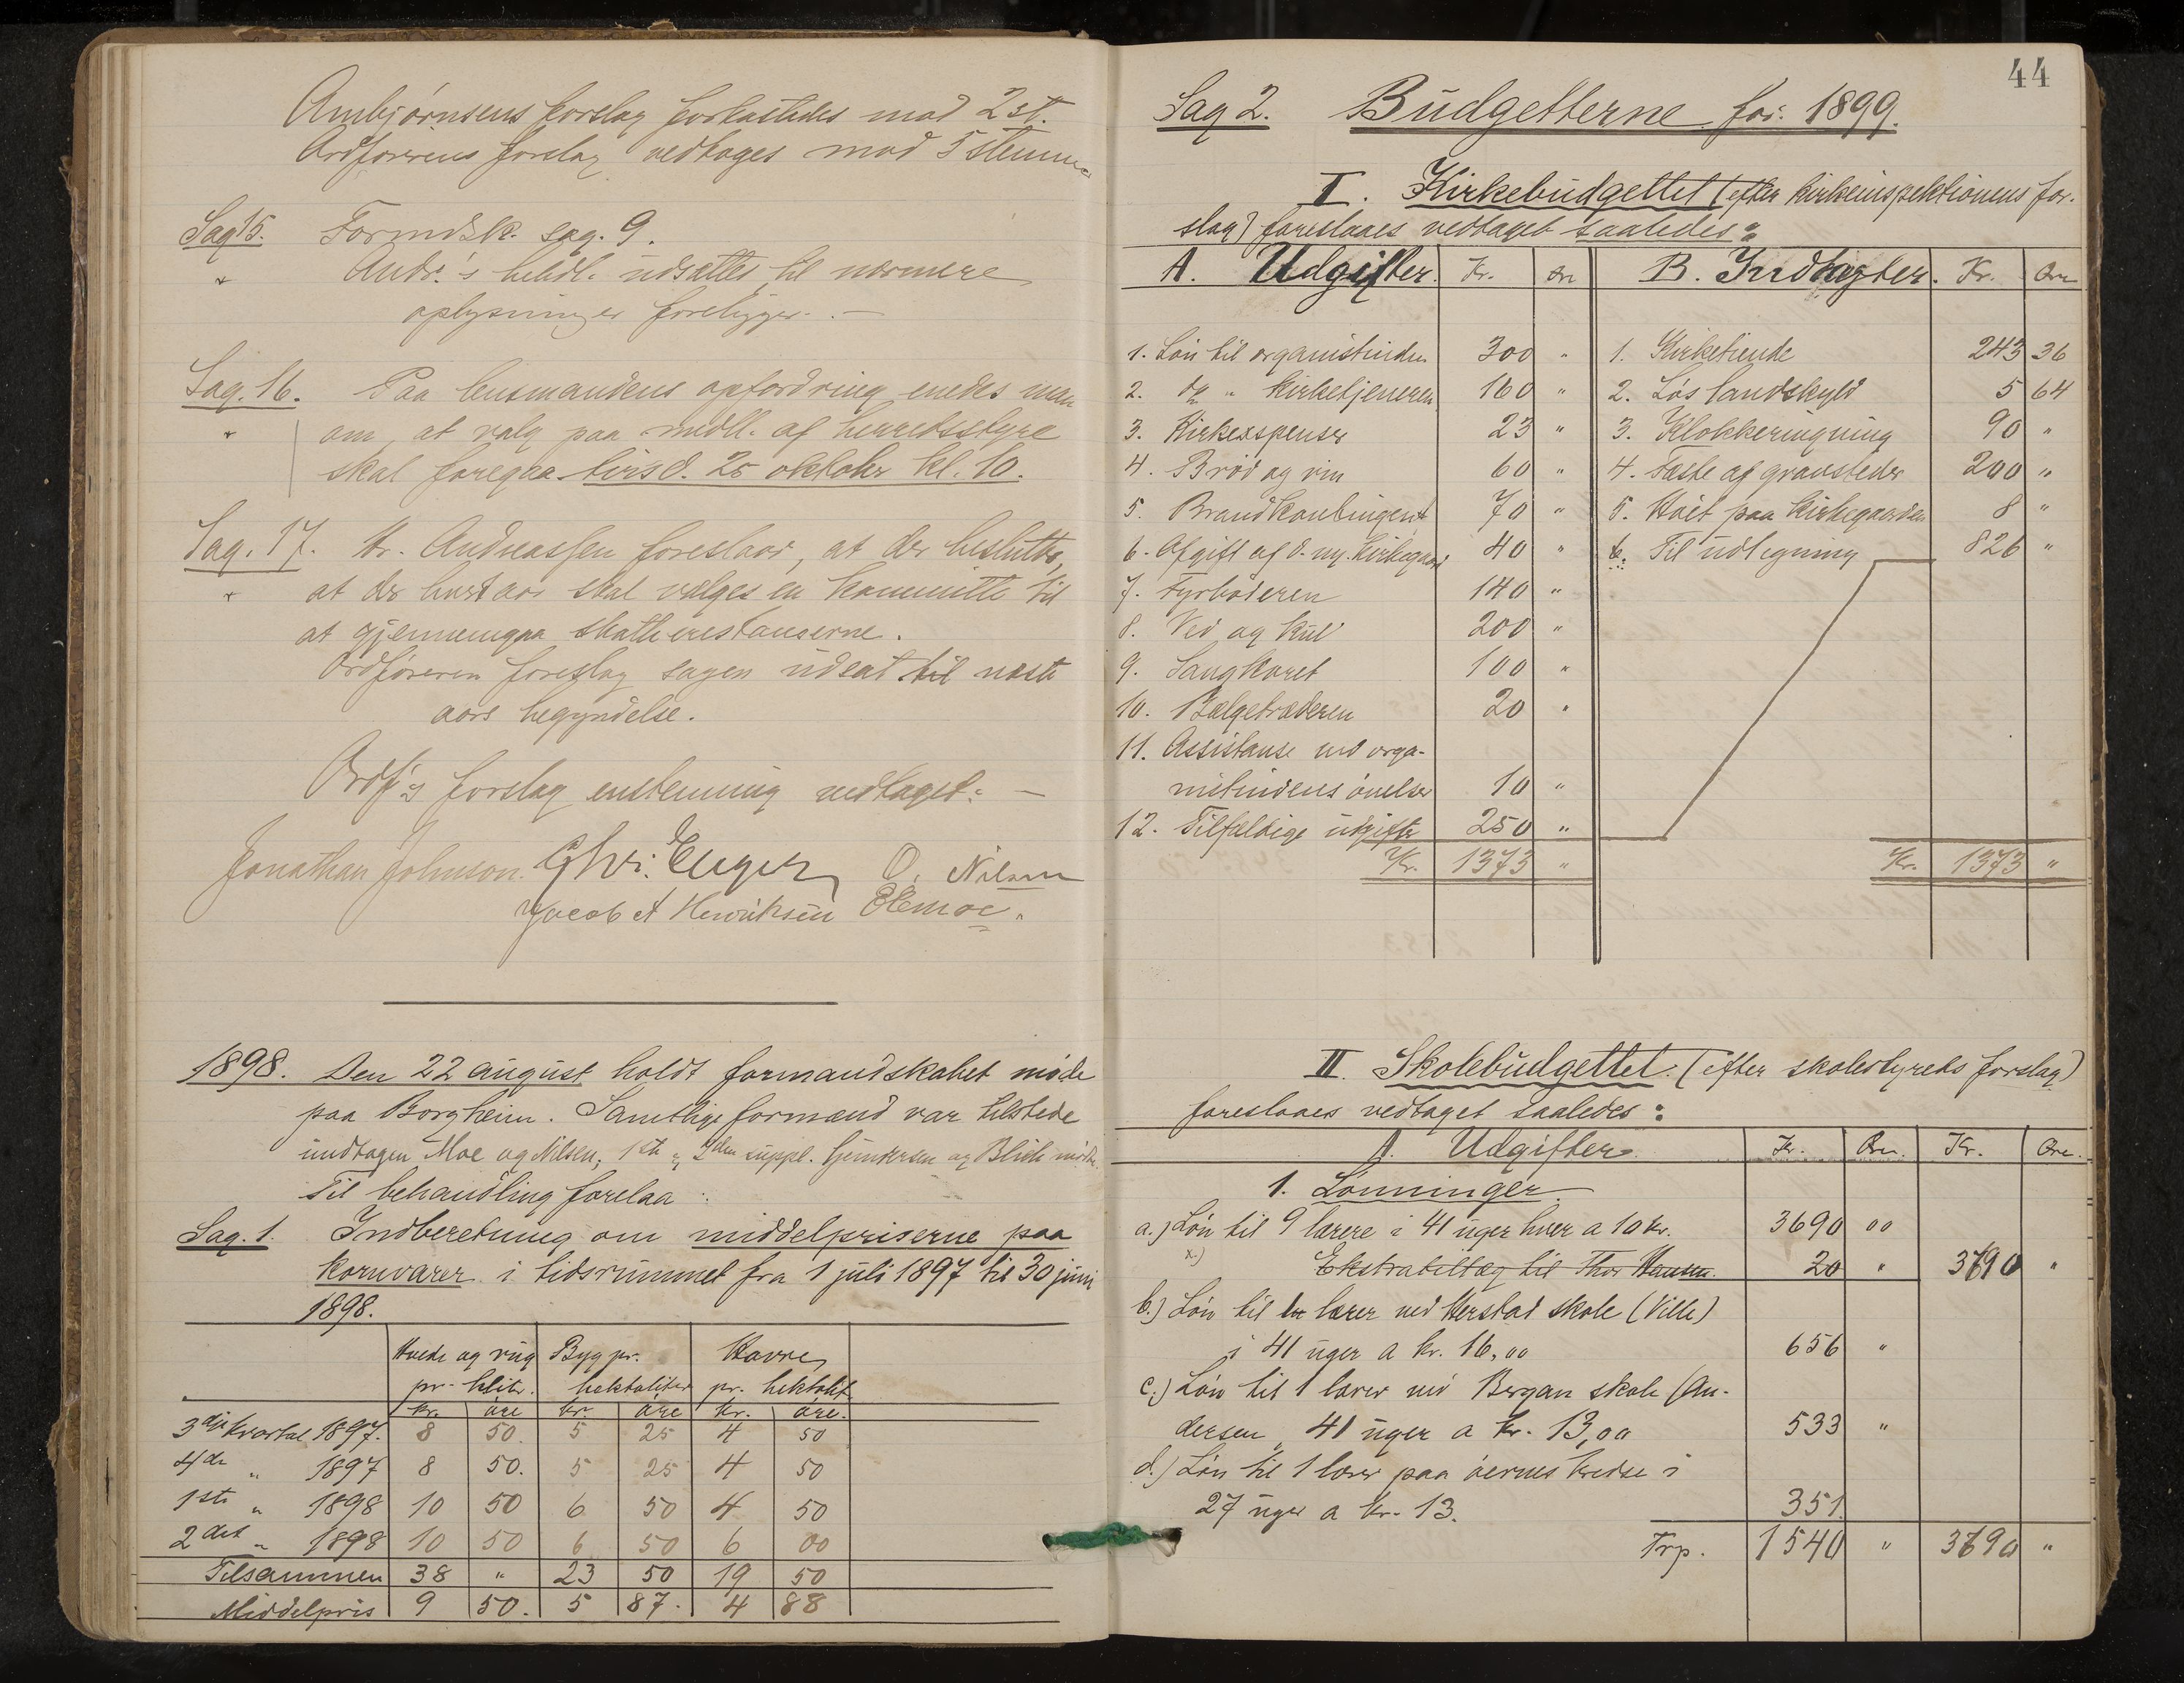 Ambjørnsens forslag forkastedes mod 2 st.
Ordførerens forslag vedtoges mod 5 stemmer
Sag 15. Formdsk. sag. 9.
Andr.'s behdl. udsættes til nærmere
oplysninger foreligger. —
Sag. 16. Paa lensmandens opfordring enedes man
om, at valg paa medl. af herredsstyre
skal foregaa tirsd. 25 oktober kl. 10.
Sag. 17. Hr. Andreassen foreslaar, at der besluttes,
at der hvert aar skal vælges en kommitte til
at gjennemgaa skatterestanserne.
Ordføreren foreslag sagen udsat til næste
aars begyndelse.
Ordf's forslag enstemmig vedtaget. —
Jonathan Johnson. Chr. Enger O. Nilsen
Jacob A Henriksen EMoe.
1898. Den 22 august holdt formandskabet møde
paa Borgheim. Samtlige formænd var tilstede
undtagen Moe og Nilsen; 1ste og 2den suppl. og Blich mødte.
Til behandling forelaa:
Sag. 1. Indberetning om middelpriserne paa
kornvarer i tidsrummet fra 1 juli 1897 til 30 juni
1898.
Hvede og rug Byg pr. Havre
pr. hlitr. hektoliter pr. hektolit
kr. øre kr. øre kr. øre.
3dje kvartal 1897. 8 50. 5 25 4 50
4de " 1897 8 50. 5 25 4 50
1ste " 1898 10 50 6 50 4 50
2det " 1898 10 50 6 50 6 00
Tilsammen 38 " 23 50 19 50
Middelpris 9 50. 5 87. 4 88
44
Sag 2. Budgetterne for 1899.
I. Kirkebudgettet (efter kirkeinspektionens for-
slag) foreslaaes vedtaget saaledes:
A. Udgifter. Kr. Øre B. Indtægter. Kr. Øre
1. Løn til organistinden 300 " 1. Kirketiende 243 36
2. do " kirketjeneren 160 " 2. Løs landskyld 5 64
3. Kirkexspenser 23 " 3. Klokkeringning 90 "
4. Brød og vin 60 " 4. Fæste af gravsteder 200 "
5. Brandkontingent 70 " 5. Høiet paa kirkegaarden 8 "
6. Afgift af d. ny. kirkegaard 40 " 6. Til udligning 826 "
7. Fyrbøderen 140 "
8. Ved og kul 200 "
9. Sangkoret 100 "
10. Bælgetræderen 20 "
11. Assistanse ved orga-
nistindens øvelser 10 "
12. Tilfældige udgifter 250 "
Kr. 1373 " Kr. 1373 "
II. Skolebudgettet. (efter skolestyrets forslag)
foreslaaes vedtaget saaledes:
A. Udgifter Kr. Øre. Kr. Øre.
1. Lønninger.
a.) Løn til 9 lærere i 41 uger hver a 10 kr. 3690 00
x.) Ekstratillæg til Thor Hansen. 20 " 3690 "
b.) Løn til lærer ved Herstad skole (Ville)
i 41 uger a kr. 16,00 656 "
c.) Løn til 1 lærer ved Bergan skole (An-
dersen, 41 uger a kr. 13,00 533 "
d.) Løn til 1 lærer paa øernes kredse i
27 uger a kr. 13. 351.
Trp. 1540 " 3690 "